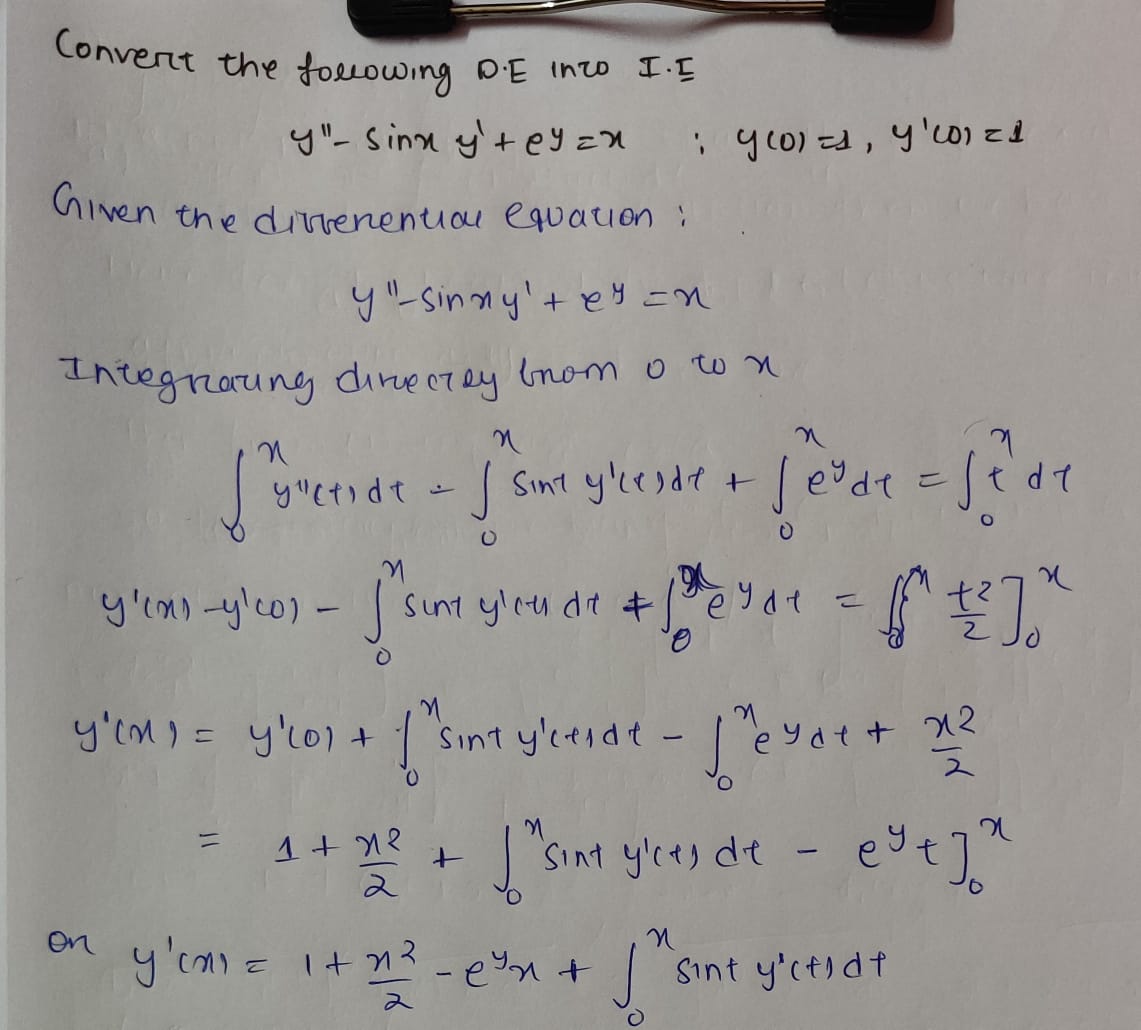 Convert the following D.E into I.E
y'' - sinx y' + e^y = x ; y(0) = 1, y'(0) = 1
Given the differential equation :
y'' - sinx y' + e^y = x
Integrating directly from 0 to x
∫₀ˣ y''(t) dt - ∫₀ˣ sint y'(t) dt + ∫₀ˣ e^y dt = ∫₀ˣ t dt
y'(x) - y'(0) - ∫₀ˣ sint y'(t) dt + ∫₀ˣ e^y dt = t²/2 ]₀ˣ
y'(x) = y'(0) + ∫₀ˣ sint y'(t) dt - ∫₀ˣ e^y dt + x²/2
= 1 + x²/2 + ∫₀ˣ sint y'(t) dt - e^y t ]₀ˣ
or y'(x) = 1 + x²/2 - e^y x + ∫₀ˣ sint y'(t) dt